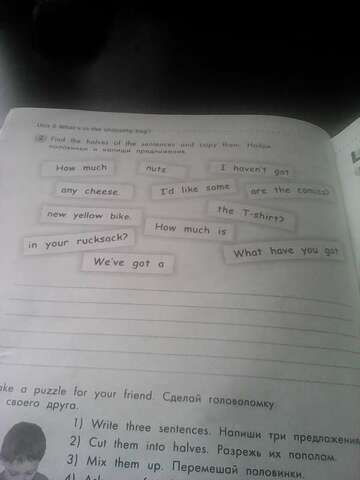 Unit 5 What's in the shopping bag?
2 Find the halves of the sentences and copy them. Найди
половинки и напиши предложения.
How much
nuts.
I haven't got
any cheese.
I'd like some
are the comics?
new yellow bike.
the T-shirt?
How much is
in your rucksack?
What have you got
We've got a
ake a puzzle for your friend. Сделай головоломку
своего друга.
1) Write three sentences. Напиши три предложения
2) Cut them into halves. Разрежь их пополам.
3) Mix them up. Перемешай половинки.